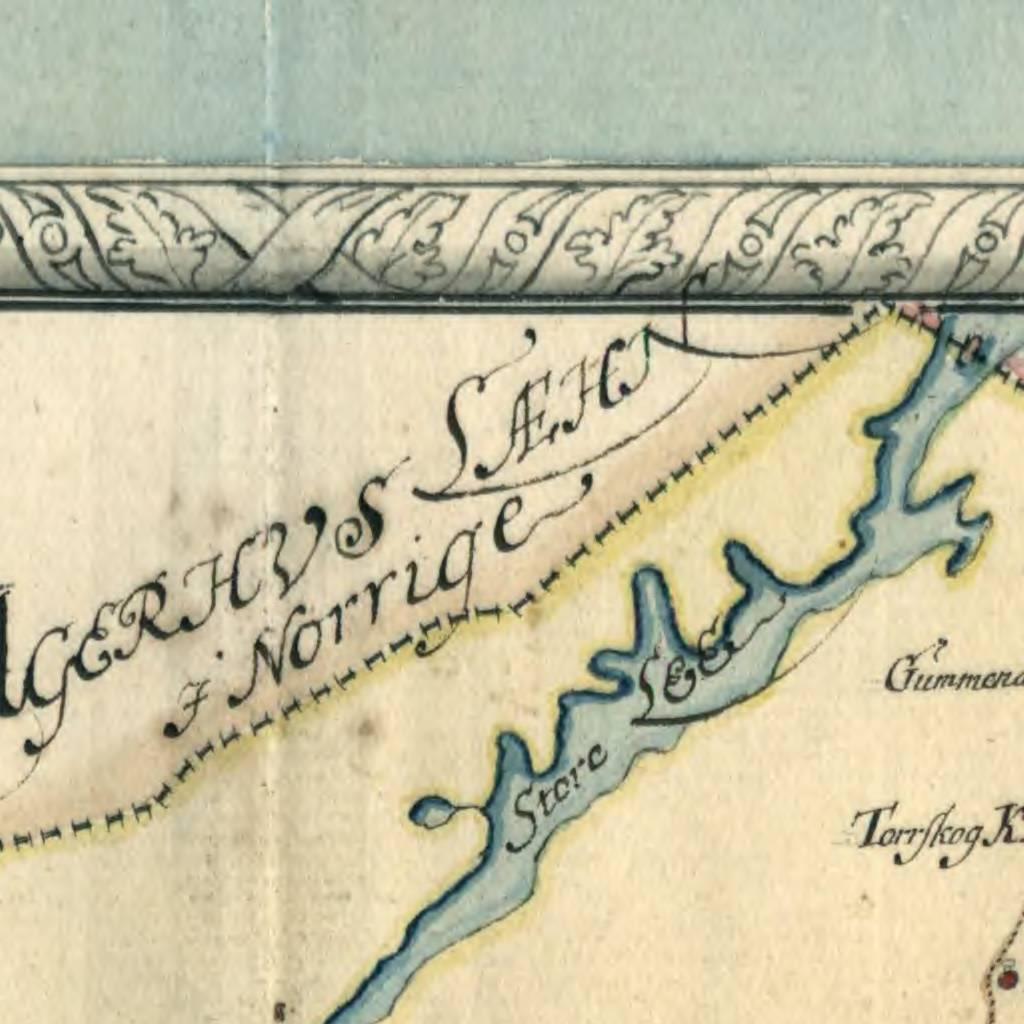 AGERHVS LÆHN
J Norrige
Store LEE
Gümmena
Torrskog K.